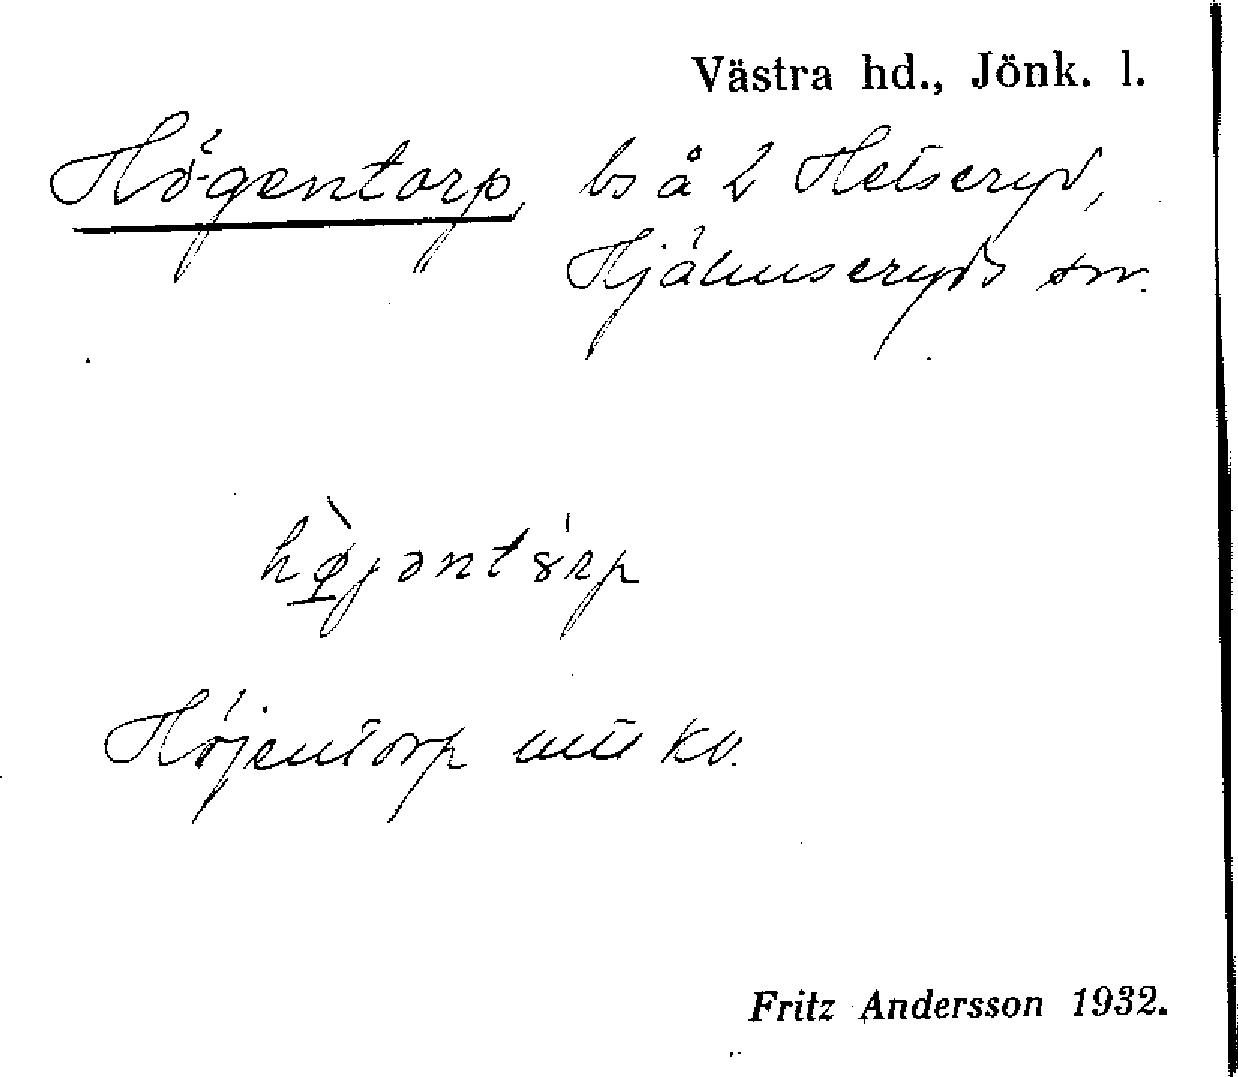 Västra hd., Jönk. l.
Högentorp, bs å 2 Hetseryd,
Hjälmseryds sn.
hø̀jəntórp
Höjentorp utt kv.
Fritz Andersson 1932.